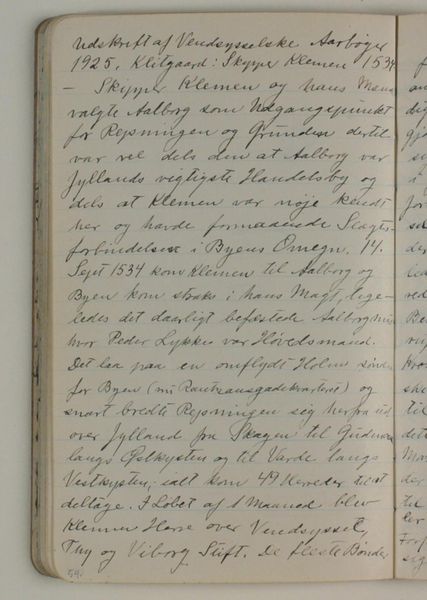 Udskrift af Vendsysselske Aarbøger
1925. Klitgaard: Skipper Klemen 1534
— Skipper Klemen og hans Mænd
valgte Aalborg som Udgangspunkt
for Rejsningen og Grunden dertil
var vel dels den at Aalborg var
Jyllands vigtigste Handelsby og
dels at Klemen var nøje kendt
her og havde formaaende Slægts-
forbindelser i Byens Omegn. 14.
Sept 1534 kom Klemen til Aalborg og
Byen kom straks i hans Magt, lige-
ledes det daarligt befæstede Aalborghus
hvor Peder Lykke var Høvedsmand.
Det laa paa en omflydt Holm sønden
for Byen (nu Rantzausgadekvarteret) og
snart bredte Rejsningen sig herfra ud
over Jylland fra Skagen til Gudenaa
langs Østkysten og til Varde langs
Vestkysten; ialt kom 49 Herreder til at
deltage. I Løbet af 1 Maaned blev
Klemen Herre over Vendsyssel,
Thy og Viborg Stift. De fleste Bønder